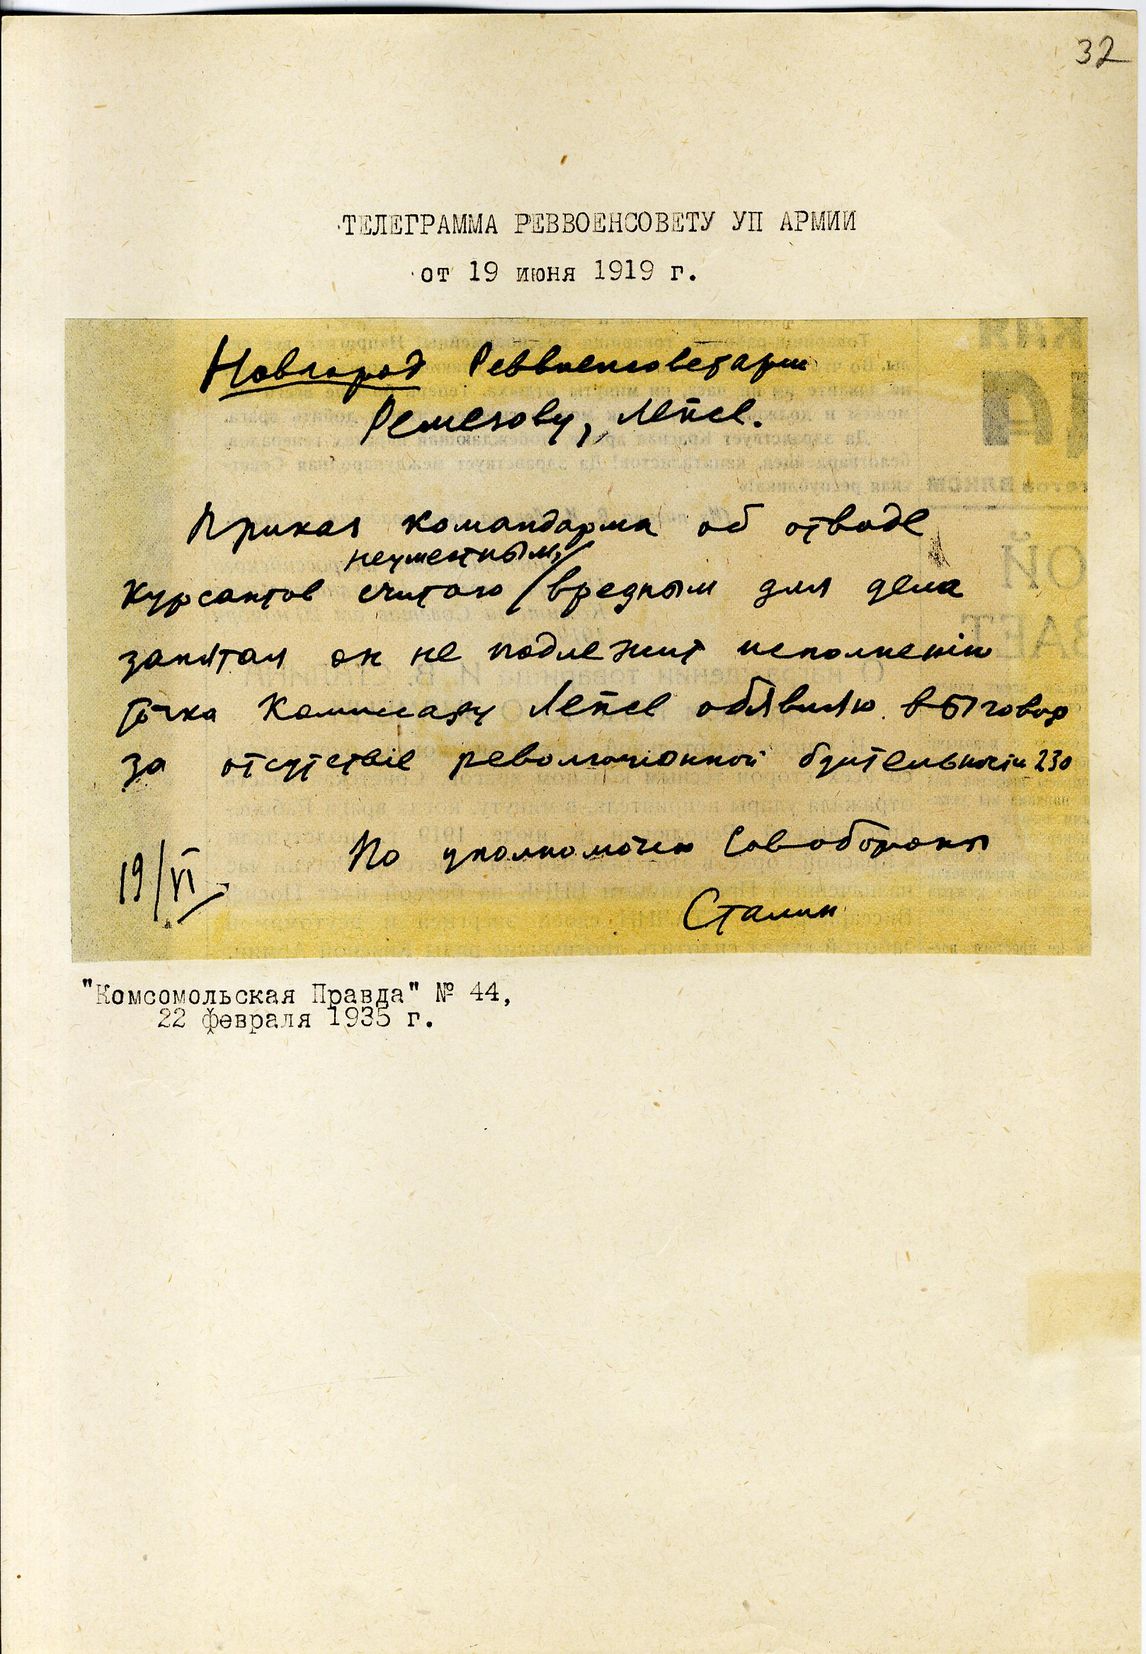 32
ТЕЛЕГРАММА РЕВВОЕНСОВЕТУ УП АРМИИ
от 19 июня 1919 г.
Новгород Реввоенсоветарм
Ремезову, Лепсе.
Приказ командарма об отводе
неуместным,
курсантов считаю / вредным для дела
запятая он не подлежит исполненію
точка Комиссару Лепсе обявляю выговор
за отсутствіе революционной бдительности 230
19/VI
По уполномочію Совобороны
Сталин
"Комсомольская Правда" № 44,
22 февраля 1935 г.